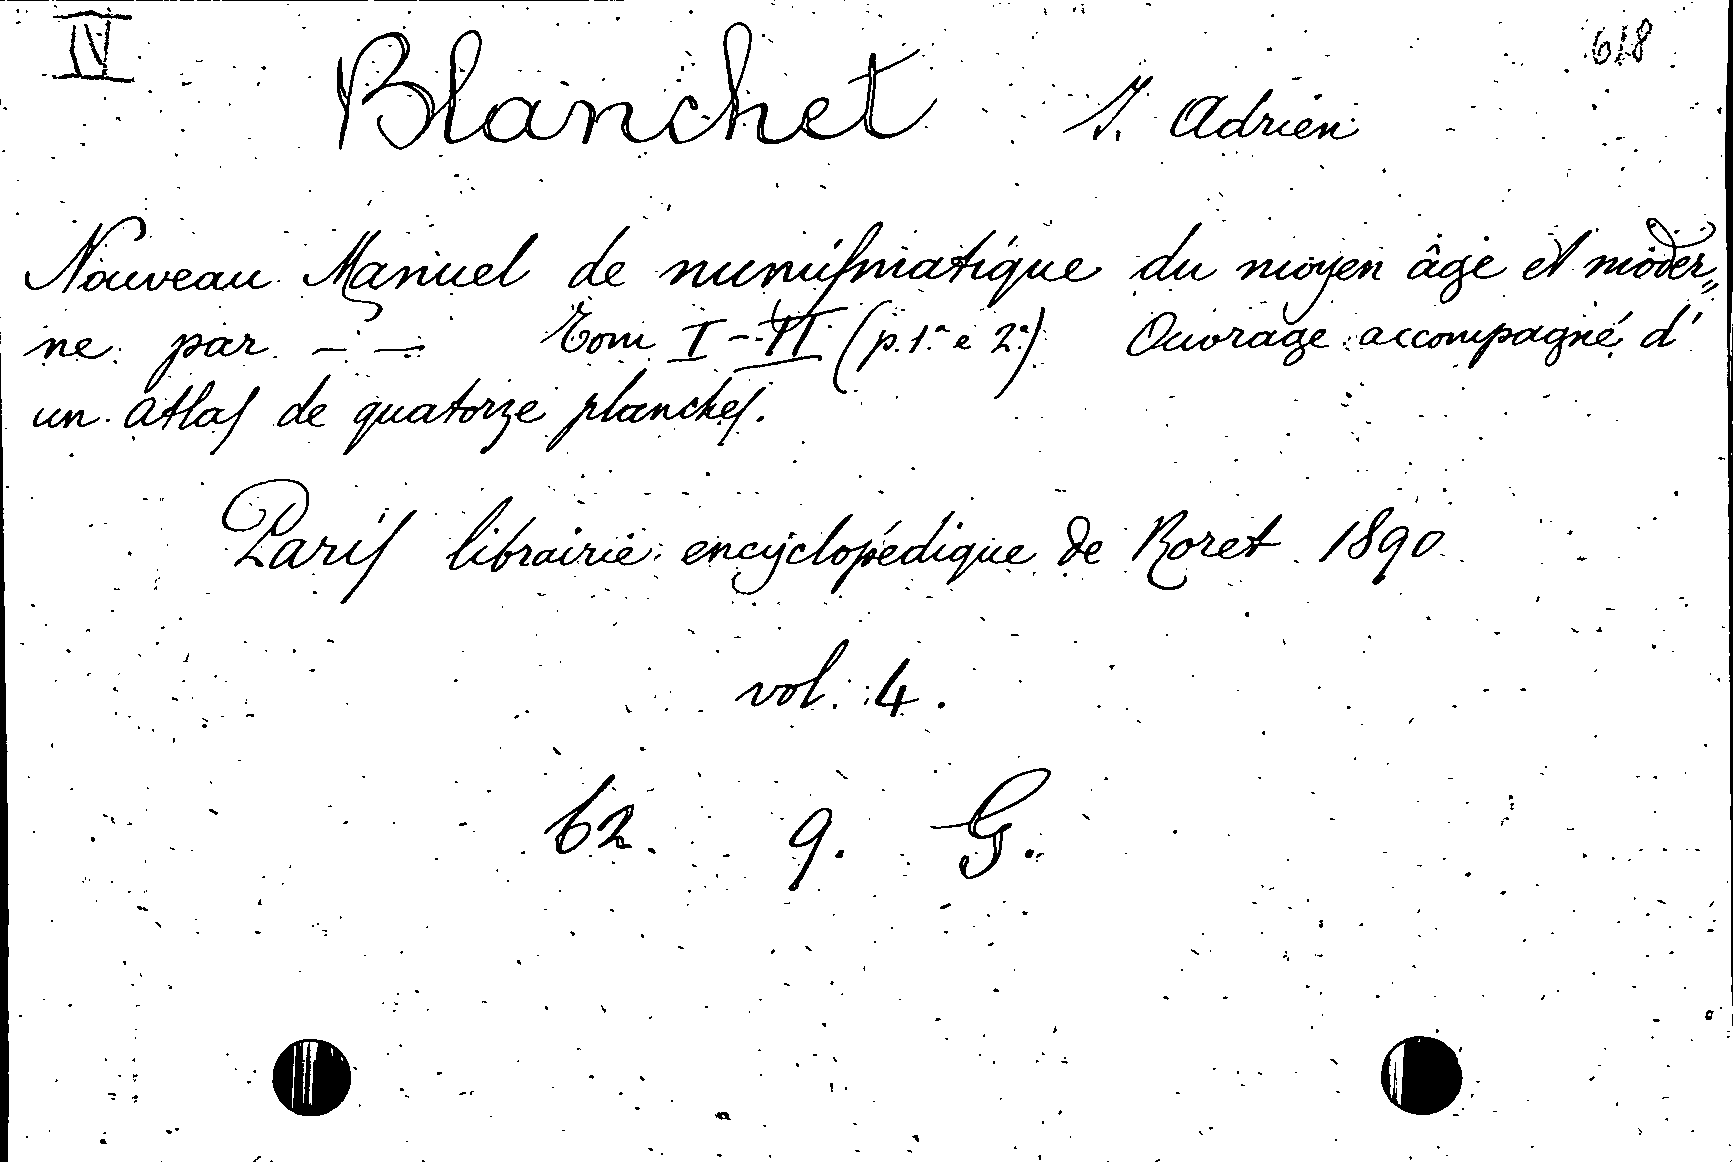 IV 618
Blanchet J. Adrien
Nouveau Manuel de numismatique du moyen âge et moder„
ne par — — Tom I-II (p. 1ª e 2ª) Ouvrage accompagné d'
un atlas de quatorze planches.
Paris librairie encyclopédique de Roret 1890
vol. 4.
62. 9. G.